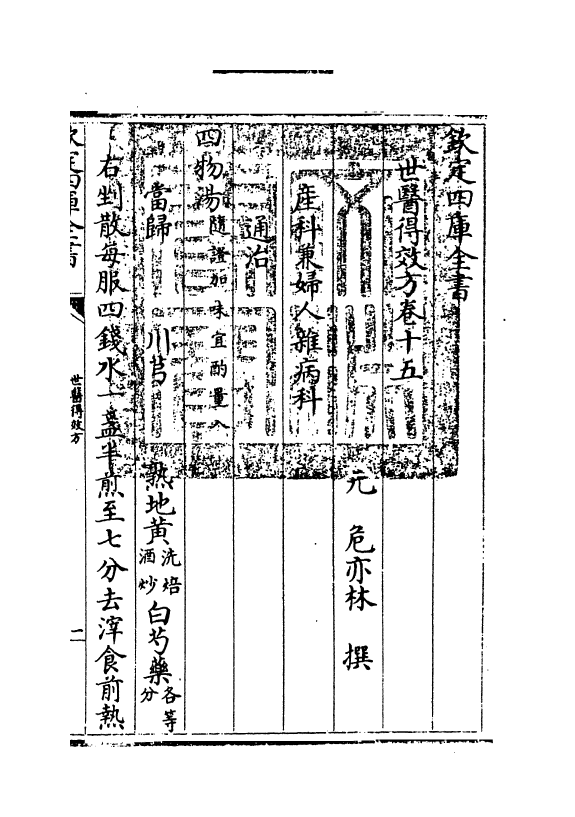 欽定四庫全書
世醫得效方卷十五
元 危亦林 撰
產科兼婦人雜病科
通治
四物湯隨證加味宜酌量入
當歸 川芎 熟地黄洗焙酒炒 白芍藥各等分
右剉散每服四錢水一盞半煎至七分去滓食前熱
欽定四庫全書
世醫得效方
二